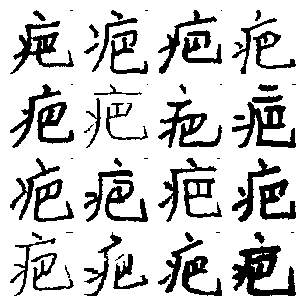 疤疤疤疤
疤疤疤疤
疤疤疤疤
疤疤疤疤